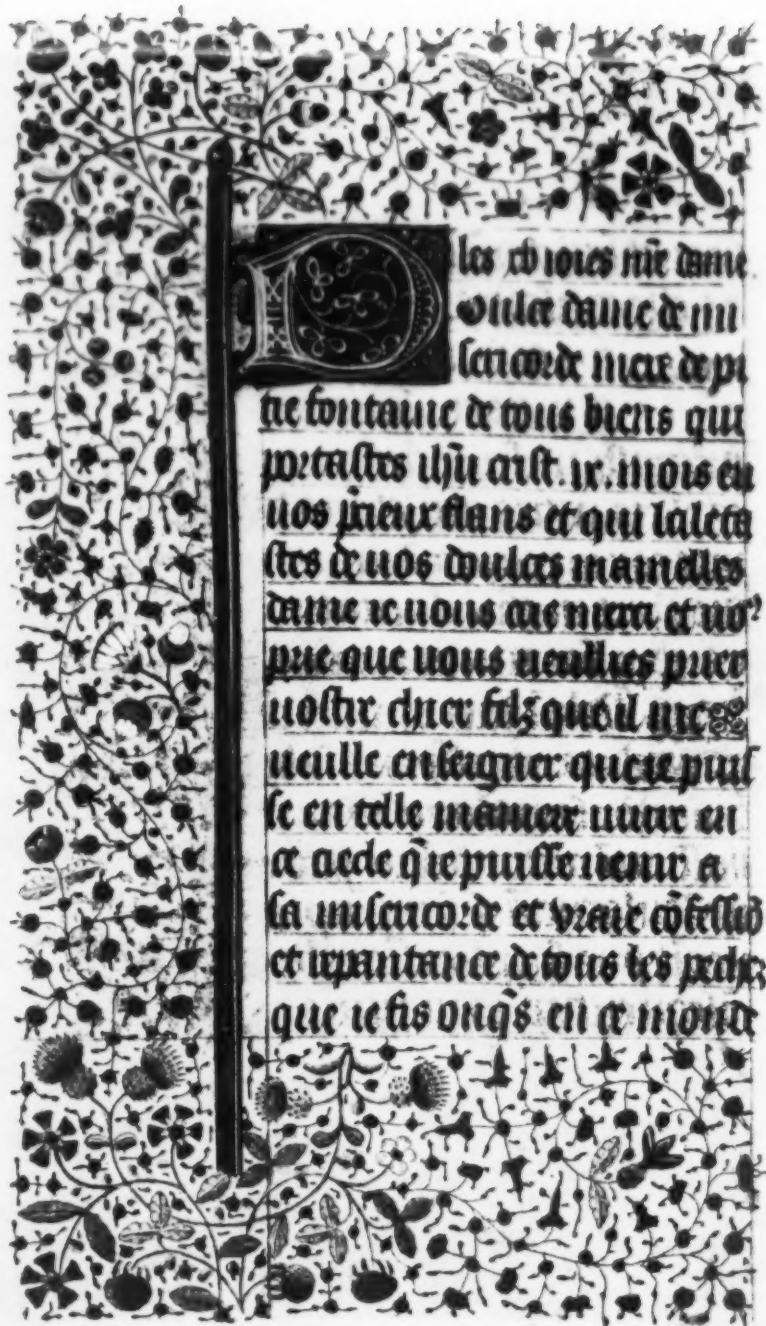 les xv ioies nr̄e dame
Doulce dame de mi
sericorde mere de pi
tie fontaine de tous biens qui
portastes ihū crist .ix. mois en
uos p̄cieux flans et qui laleta
stes de uos doulces mamelles
dame ie uous cris merci et uoꝰ
prie que uous ueullies prier
uostre chier filz que il me
ueulle enseigner que ie puis
se en telle maniere uiure en
ce ciecle q̄ ie puisse uenir a
sa misericorde et vraie cōfessiō
et repantance de tous les pechez
que ie fis onq̄s en ce monde